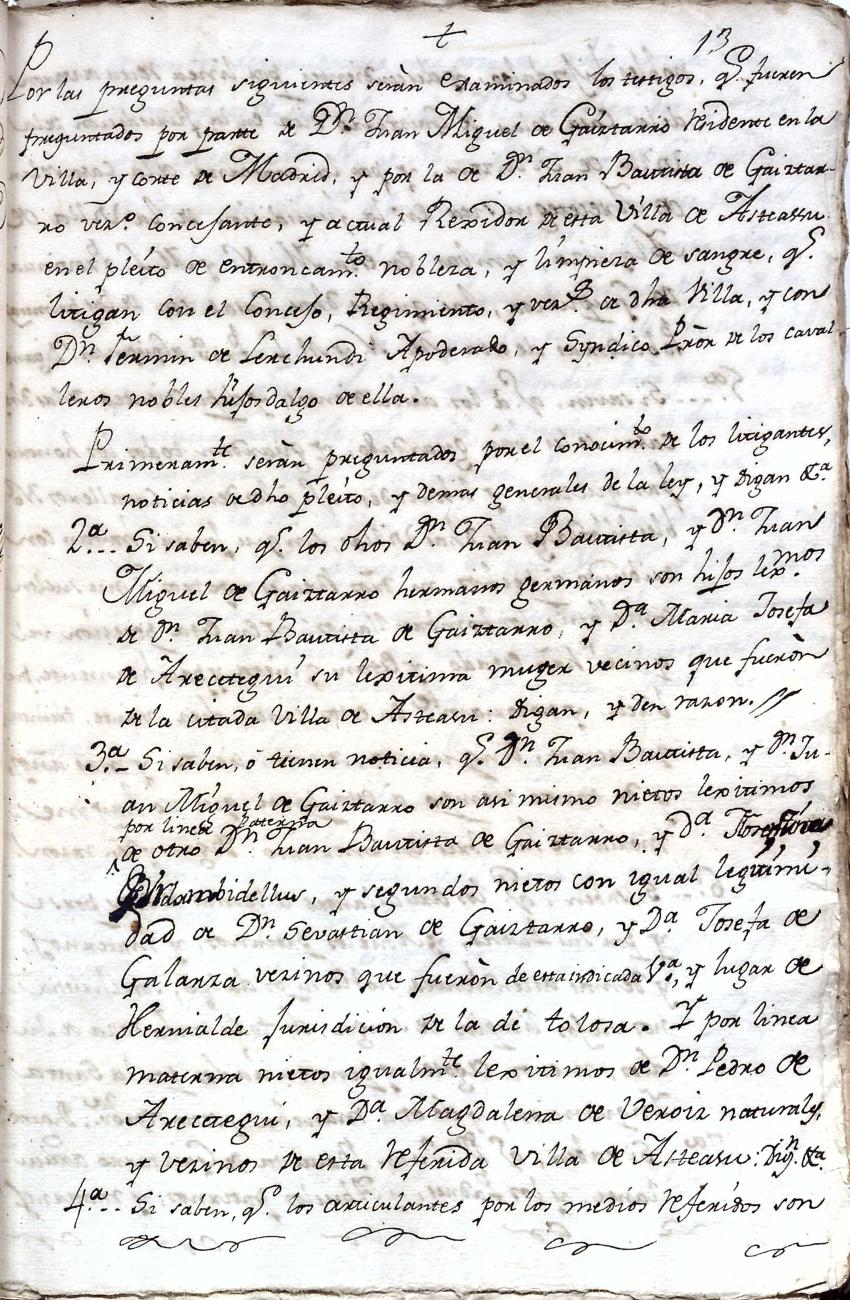 †
13
Por las preguntas siguientes seràn examinados los testigos, q.^e fueren
preguntados por parte de D.^n Juan Miguel de Gaiztarro Residente en la
Villa, y corte de Madrid, y por la de D.^n Juan Bautista de Gaiztar-
ro vez.^o concesante, y actual Rexidor de esta Villa de Asteasu
en el pleito de entroncam.^to nobleza, y limpieza de sangre, q.^e
litigan con el Concejo, Regimiento, y vez.^s de dha Villa, y con
D.^n Fermin de Lerchundi Apoderado, y Syndico Pròr de los caval-
leros nobles hijosdalgo de ella.
Primeram.^te seràn preguntados por el conocim.^to de los litigantes,
noticias de dho pleito, y demas generales de la ley, y digan &.^a
2.^a.. Si saben, q.^e los dhos D.^n Juan Bautista, y D.^n Juan
Miguel de Gaiztarro hermanos germanos son hijos lex.^mos
de D.^n Juan Bautista de Gaiztarro, y D.^a Maria Josefa
de Areztegui su lexitima muger vecinos que fueròn
de la citada Villa de Asteasu: digan, y den razon. //
3.^a.. Si saben, ó tienen noticia, q.^e D.^n Juan Bautista, y D.^n Ju-
an Miguel de Gaiztarro son asi mismo nietos lexitimos
por linea paterna
de otro D.^n Juan Bautista de Gaiztarro, y D.^a
y segundos nietos con igual legitimi-
dad de D.^n Sevastian de Gaiztarro, y D.^a Josefa de
Galarza vezinos que fueròn de esta indicada V.^a, y lugar de
Hernialde Jurisdicion de la de tolosa. Y por linea
materna nietos igualm.^te lexitimos de D.^n Pedro de
Areztegui, y D.^a Magdalena de Veroiz naturales,
y vezinos de esta Referida Villa de Asteasu: Dig.^n &.^a
4.^a.. Si saben, q.^e los articulantes por los medios Referidos son